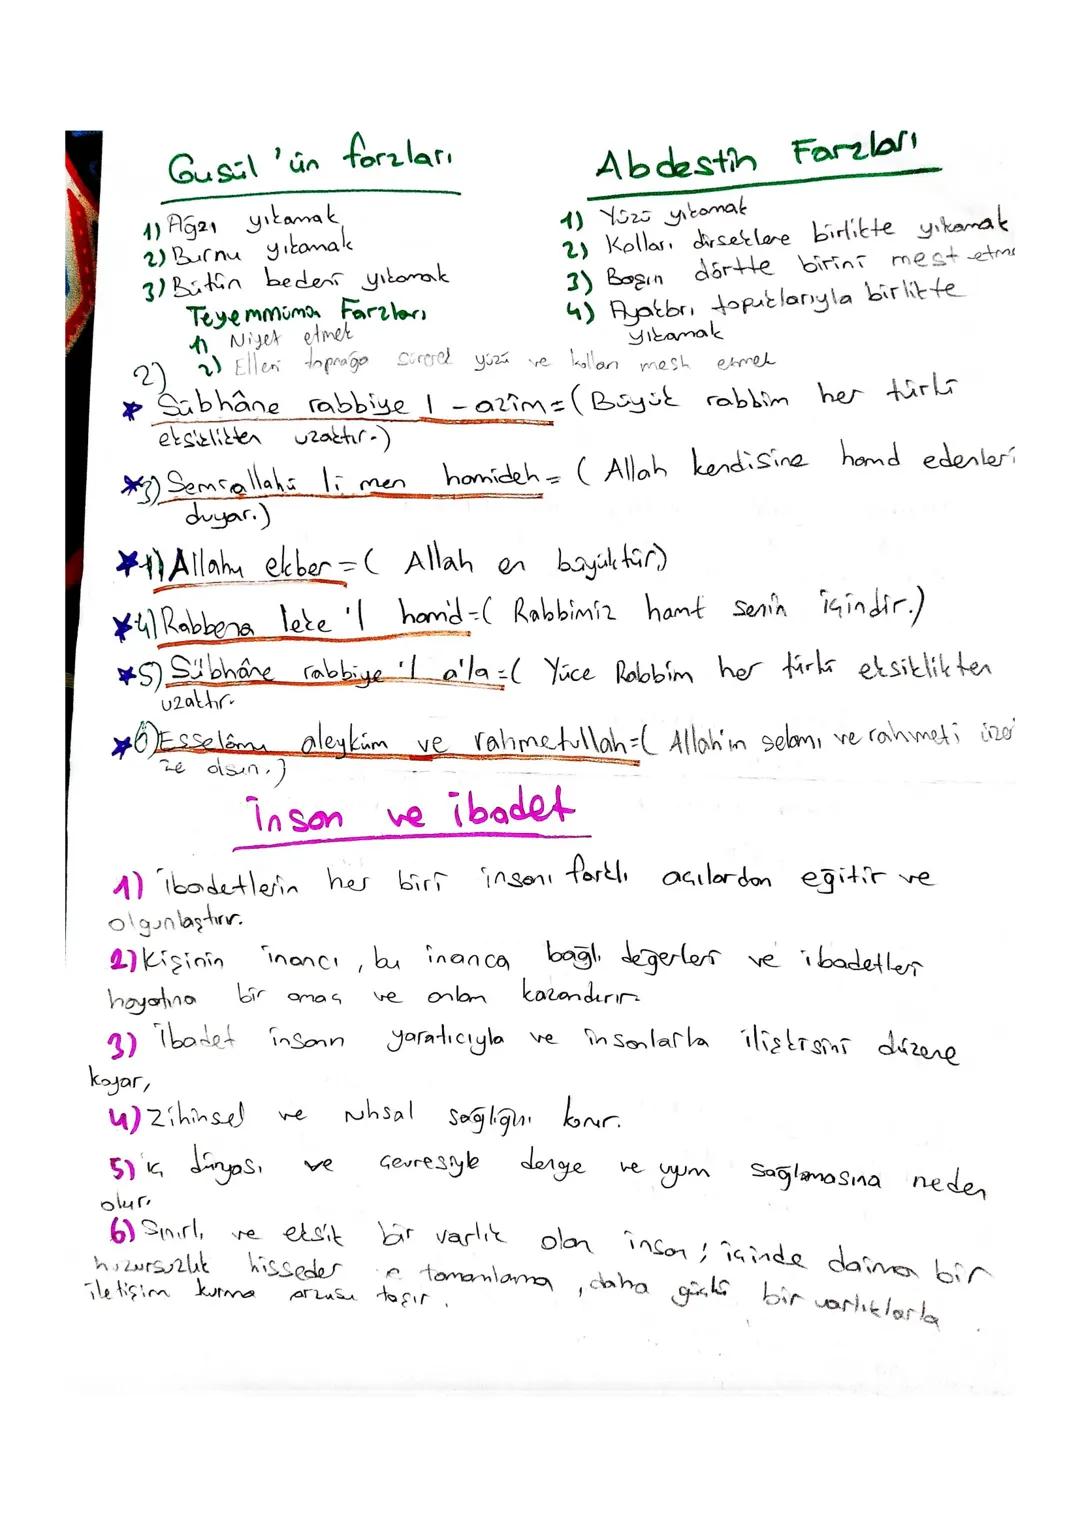 Gusül'ün farzları
1) Ağzı yıkamak
2) Burnu yıkamak
3) Bütün bedeni yıkamak
Abdestin Farzları
1) Yüzü yıkamak
2) Kolları dirseklere birlikte yıkamak
3) Başın dörtte birini mest etme
4) Ayakları topuklarıyla birlikte
yıkamak
Teyemmümün Farzları
1) Niyet etmek
2) Elleri toprağa sürerek yüzü ve kolları mesh etmek
2)
* Sübhâne rabbiye l-azîm=(Büyük rabbim her türlü
eksiklikten uzaktır.)
*3) Semiallahü li men hamideh= (Allah kendisine hamd edenleri
duyar.)
*1) Allahu ekber=( Allah en büyüktür)
*4) Rabbena leke'l hamd=( Rabbimiz hamt senin içindir.)
*5) Sübhâne rabbiye'l a'la=( Yüce Rabbim her türlü eksiklikten
uzaktır.
*6) Esselâmu aleyküm ve rahmetullah=( Allah'ın selamı ve rahmeti üzeri
ze olsun.)
İnsan ve ibadet
1) ibadetlerin her biri insanı farklı açılardan eğitir ve
olgunlaştırır.
2) Kişinin inancı, bu inanca bağlı değerleri ve ibadetleri
hayatına bir amaç ve anlam kazandırır.
3) İbadet insanın yaratıcıyla ve insanlarla ilişkisini düzene
koyar,
4) Zihinsel ve ruhsal sağlığını korur.
5) iç dünyası ve çevresiyle denge ve uyum sağlamasına neden
olur.
6) Sınırlı ve eksik bir varlık olan insan; içinde daima bir
huzursuzluk hisseder tamamlama, daha güçlü bir varlıklarla
iletişim kurma arzusu taşır.